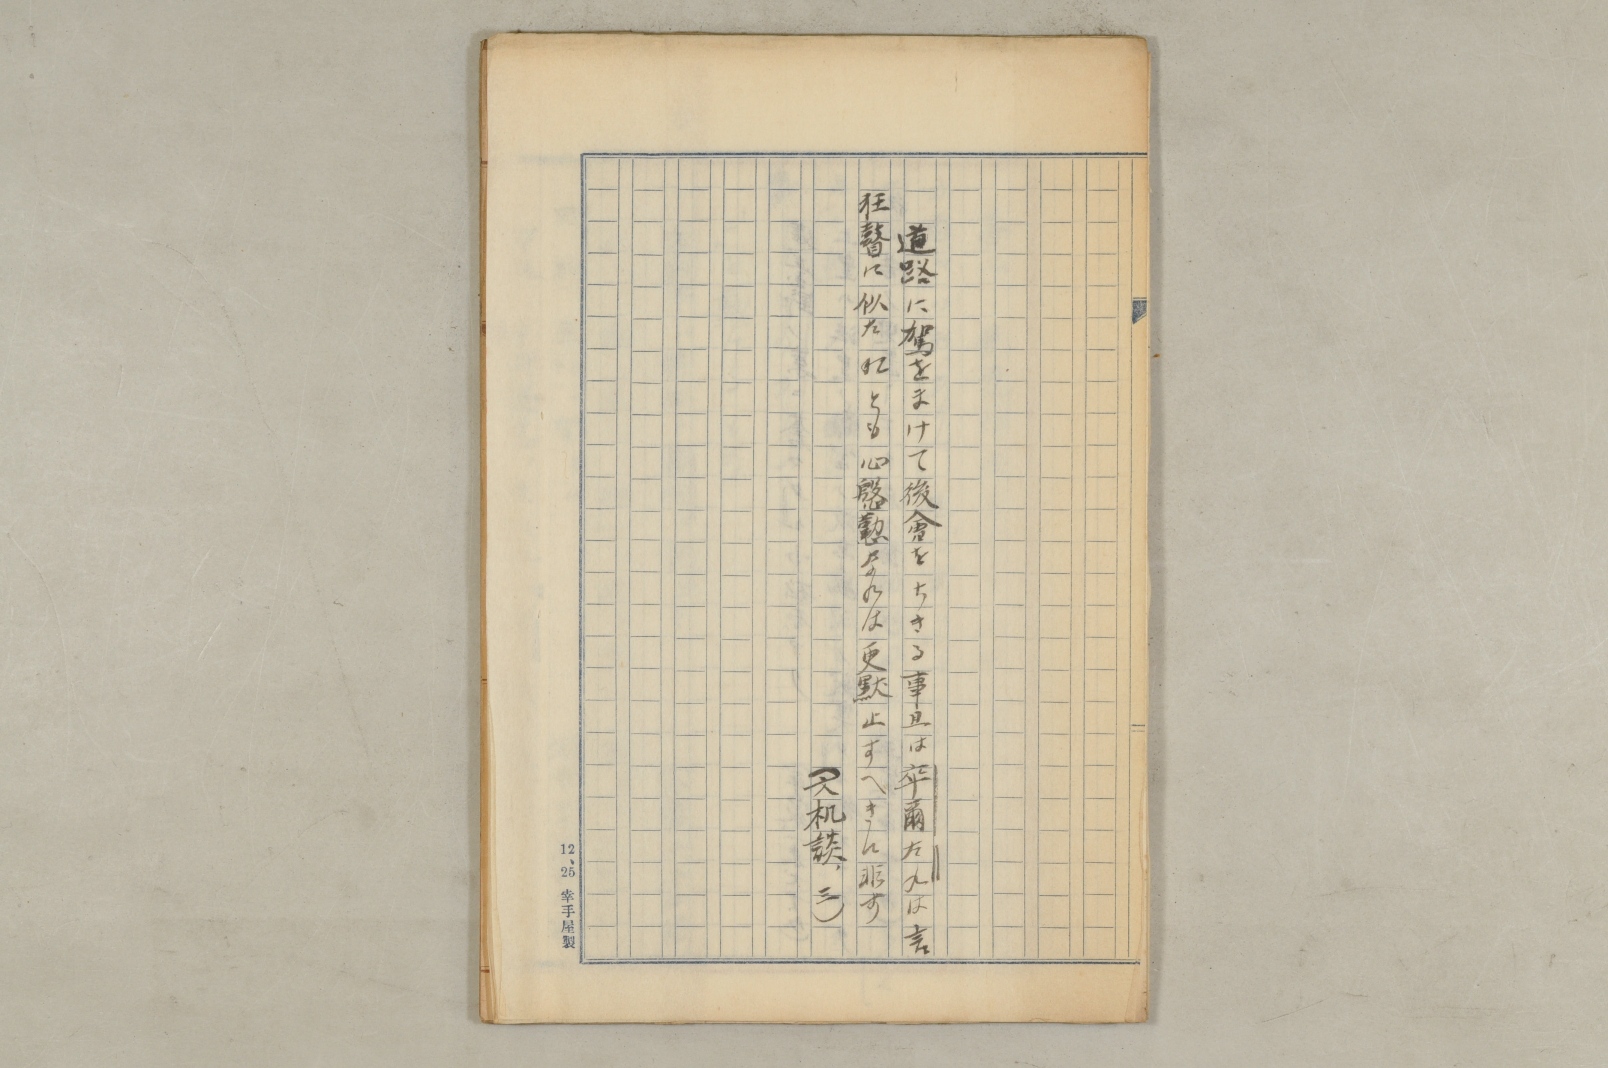 道路に駕をまけて後會をちきる事且は卒爾たれは言
狂瞽に似たれとも心慇懃なれは更默止すへきに非す
机談、三)
12、25 幸手屋製